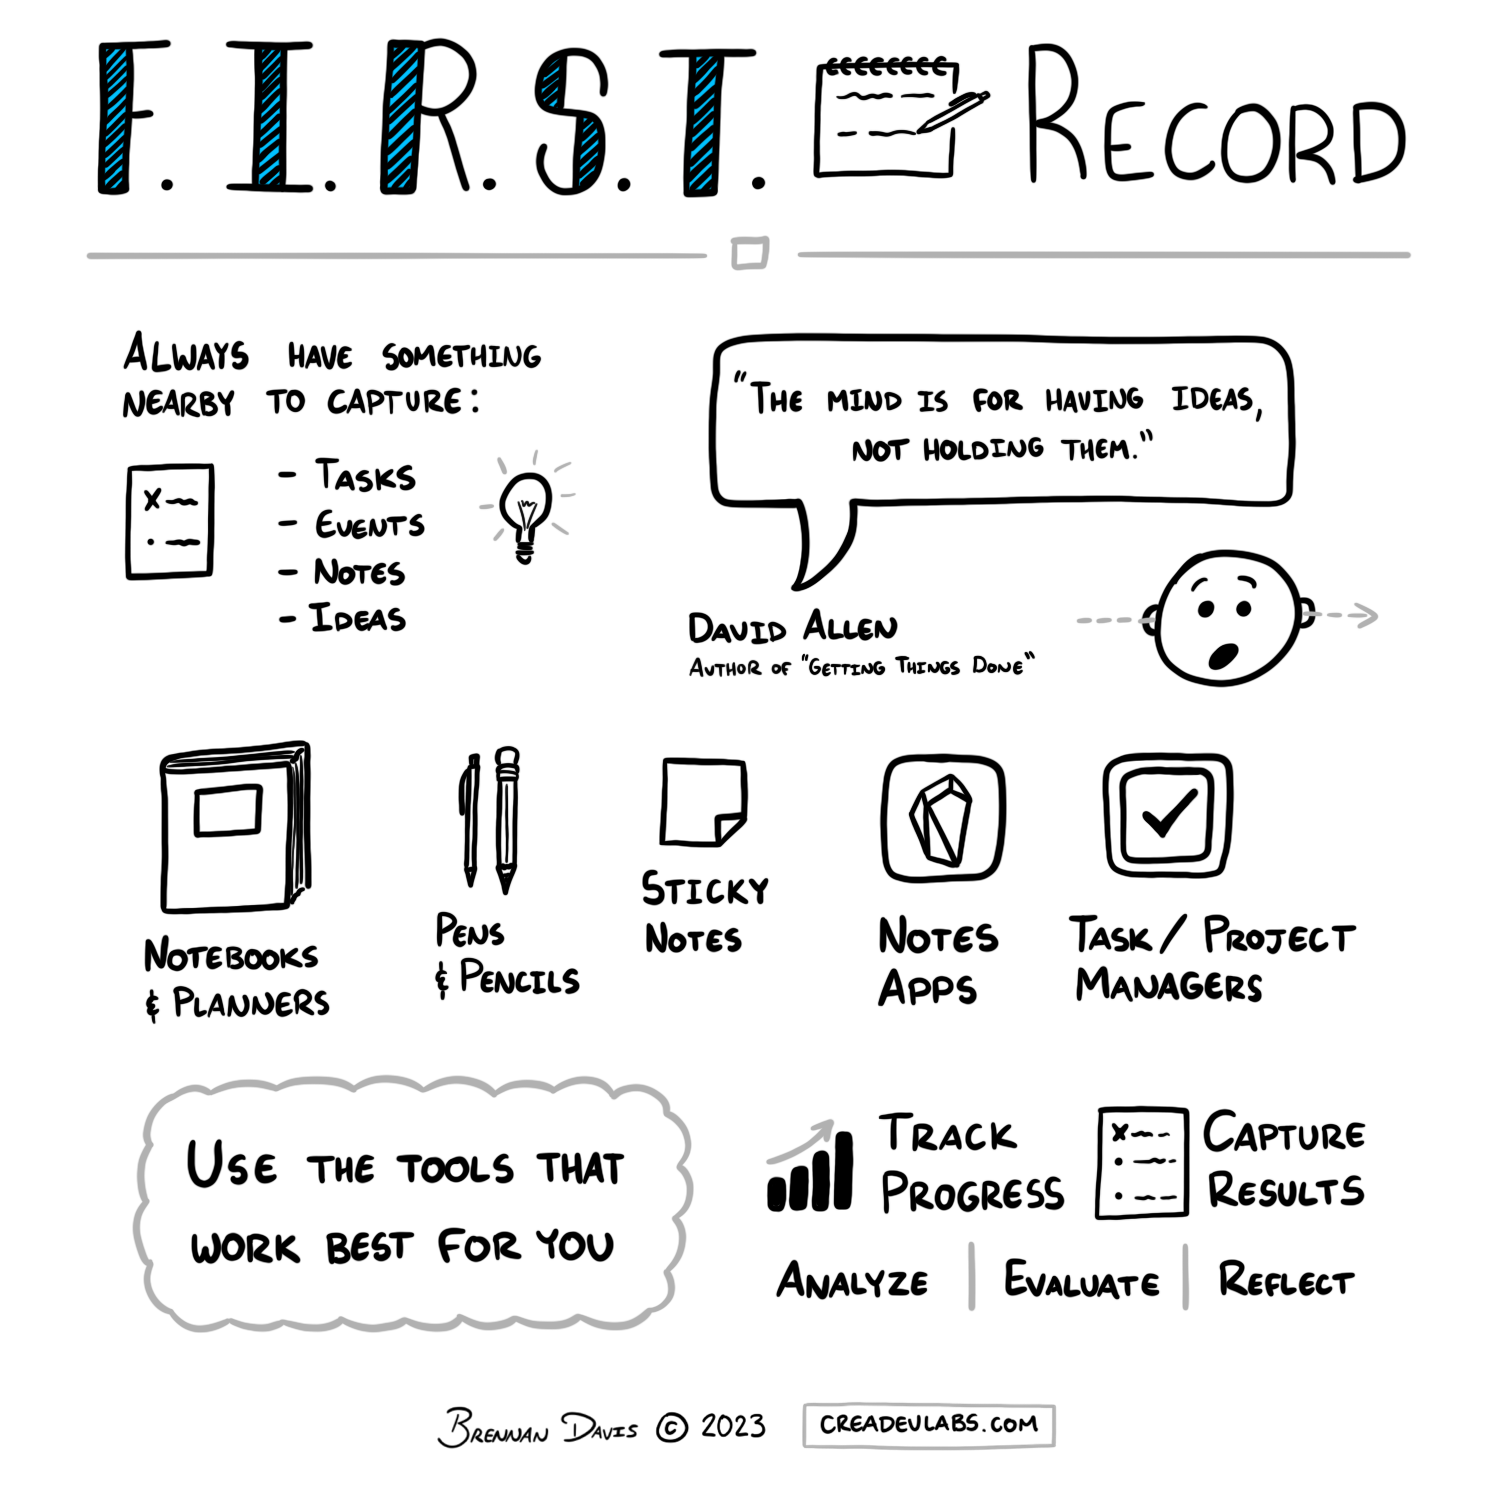 F.I.R.S.T. RECORD
ALWAYS HAVE SOMETHING
NEARBY TO CAPTURE:
- TASKS
- EVENTS
- NOTES
- IDEAS
"THE MIND IS FOR HAVING IDEAS,
NOT HOLDING THEM."
DAVID ALLEN
AUTHOR OF "GETTING THINGS DONE"
NOTEBOOKS
& PLANNERS
PENS
& PENCILS
STICKY
NOTES
NOTES
APPS
TASK/PROJECT
MANAGERS
USE THE TOOLS THAT
WORK BEST FOR YOU
TRACK
PROGRESS
CAPTURE
RESULTS
ANALYZE | EVALUATE | REFLECT
BRENNAN DAVIS © 2023
CREADEVLABS.COM